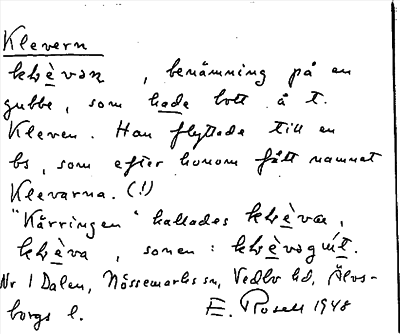 Klevern
klèvan, benämning på en
gubbe, som hade bott å t.
Kleven. Han flyttade till en
bs, som efter honom fått namnet
Klevarna. (!)
"Kärringen" kallades klèva,
klèva, sonen: klèvagút.
Nr 1 Dalen, Nössemarks sn, Vedbo hd, Älvs-
borgs l. E. Rosell 1948